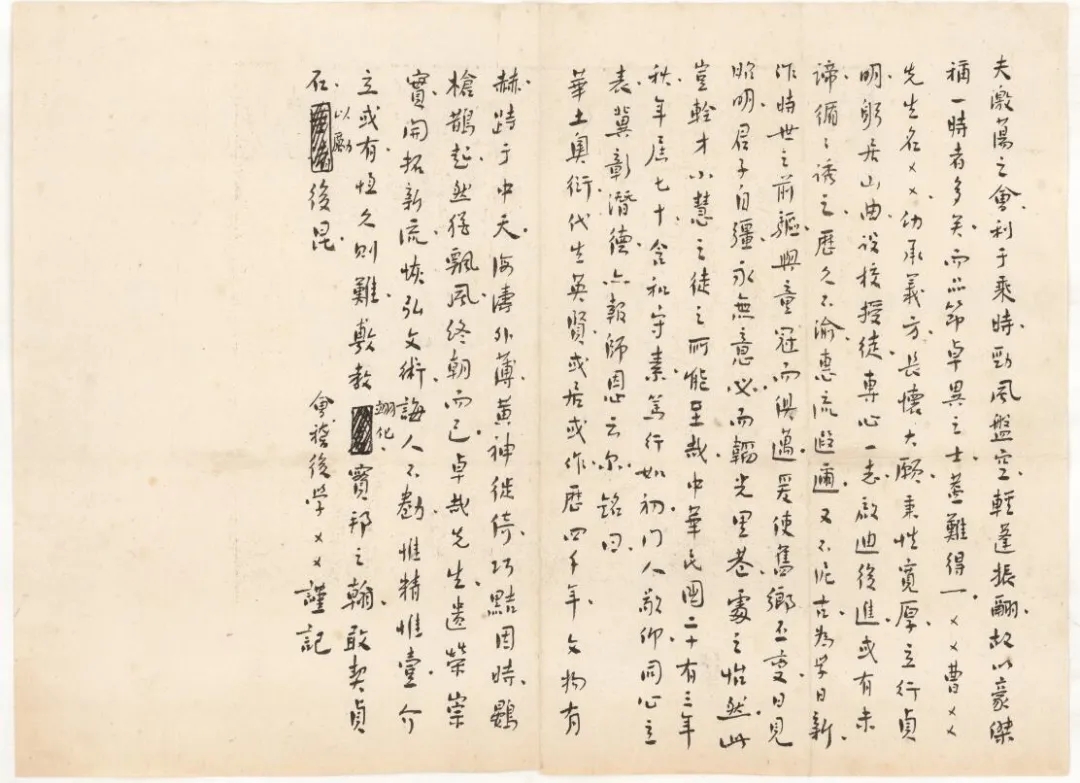 夫激蕩之會利于乘時勁風盤空輕蓬振翮故以豪傑
稱一時者多矣而品節卓異之士蓋難得一××曹××
先生名××幼承義方長懷大願秉性寬厚立行貞
明躬居山曲設校授徒專心一志啟迪後進或有未
諦循〻誘之歷久不渝惠流遐邇又不泥古為學日新
作時世之前驅與童冠而俱邁爰使舊鄉丕變日見
昭明君子自彊永無意必而韜光里巷處之怡然此
豈輇才小慧之徒之所能至哉中華民國二十有三年
秋年屆七十含和守素篤行如初門人敬仰同心立
表冀彰潛德亦報師恩云爾銘曰
華土奧衍代生英賢或居或作歷四千年文物有
赫峙于中天海濤外薄黃神徙倚巧黠因時鷃
槍鵲起然猶飄風終朝而已卓哉先生遺榮崇
實開拓新流恢弘文術誨人不勌惟精惟壹介
立或有恆久則難敷教翊化實邦之翰敢契貞
石以勵後昆
會稽後學××謹記